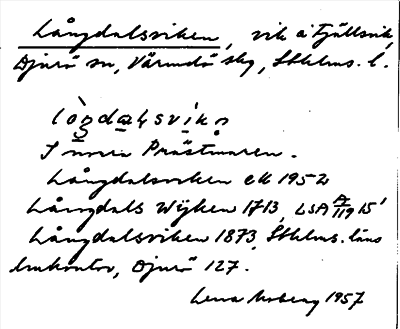 Långdalsviken, vik å Fjällsvik,
Djurö sn, Värmdö skg, Sthlms. l.
lòŋdaɫsvikən
I norra Prästmaren.
Långdalsviken ek 1952
Långdals Wijken 1713, LSA A/119 15'
Långdalsviken 1873, Sthlms. läns
lmkontor, Djurö 127.
Lena Moberg 1957